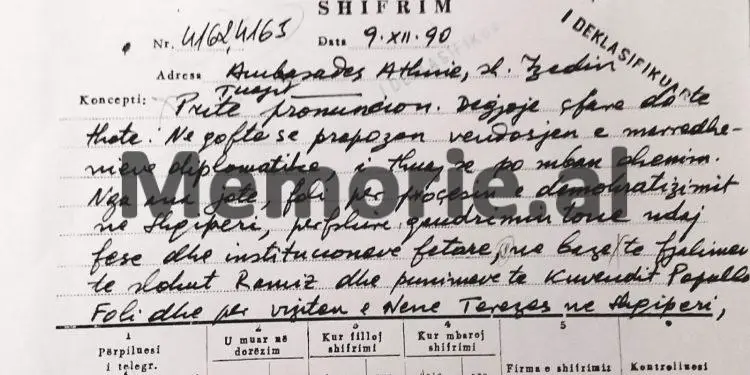 SHIFRIM
Nr. 4162,4163 Data 9.XII.90
I DEKLASIFIKUAR
Adresa Ambasades Athine, sh. Izedin
Koncepti: Tuajit
Prite pronuncion. Degjoje çfare do te
thote. Ne qofte se propozon vendosjen e marredhe-
nieve diplomatike, i thuaj se po mban shenim.
Nga ana jote, foli per procesin e demokratizimit
ne Shqiperi, perfshire qendrimin tone ndaj
fese dhe institucioneve fetare, ne baze te fjalimeve
te shokut Ramiz dhe punimeve te Kuvendit Popullor
Foli dhe per viziten e Nene Terezes ne Shqiperi,
Memorie.al
1 2 3 4 5 6
Përpiluesi i telegr. U muar në dorëzim Kur filloj shifrimi Kur mbaroj shifrimi Firma e shifrimiz Kontrolluesi